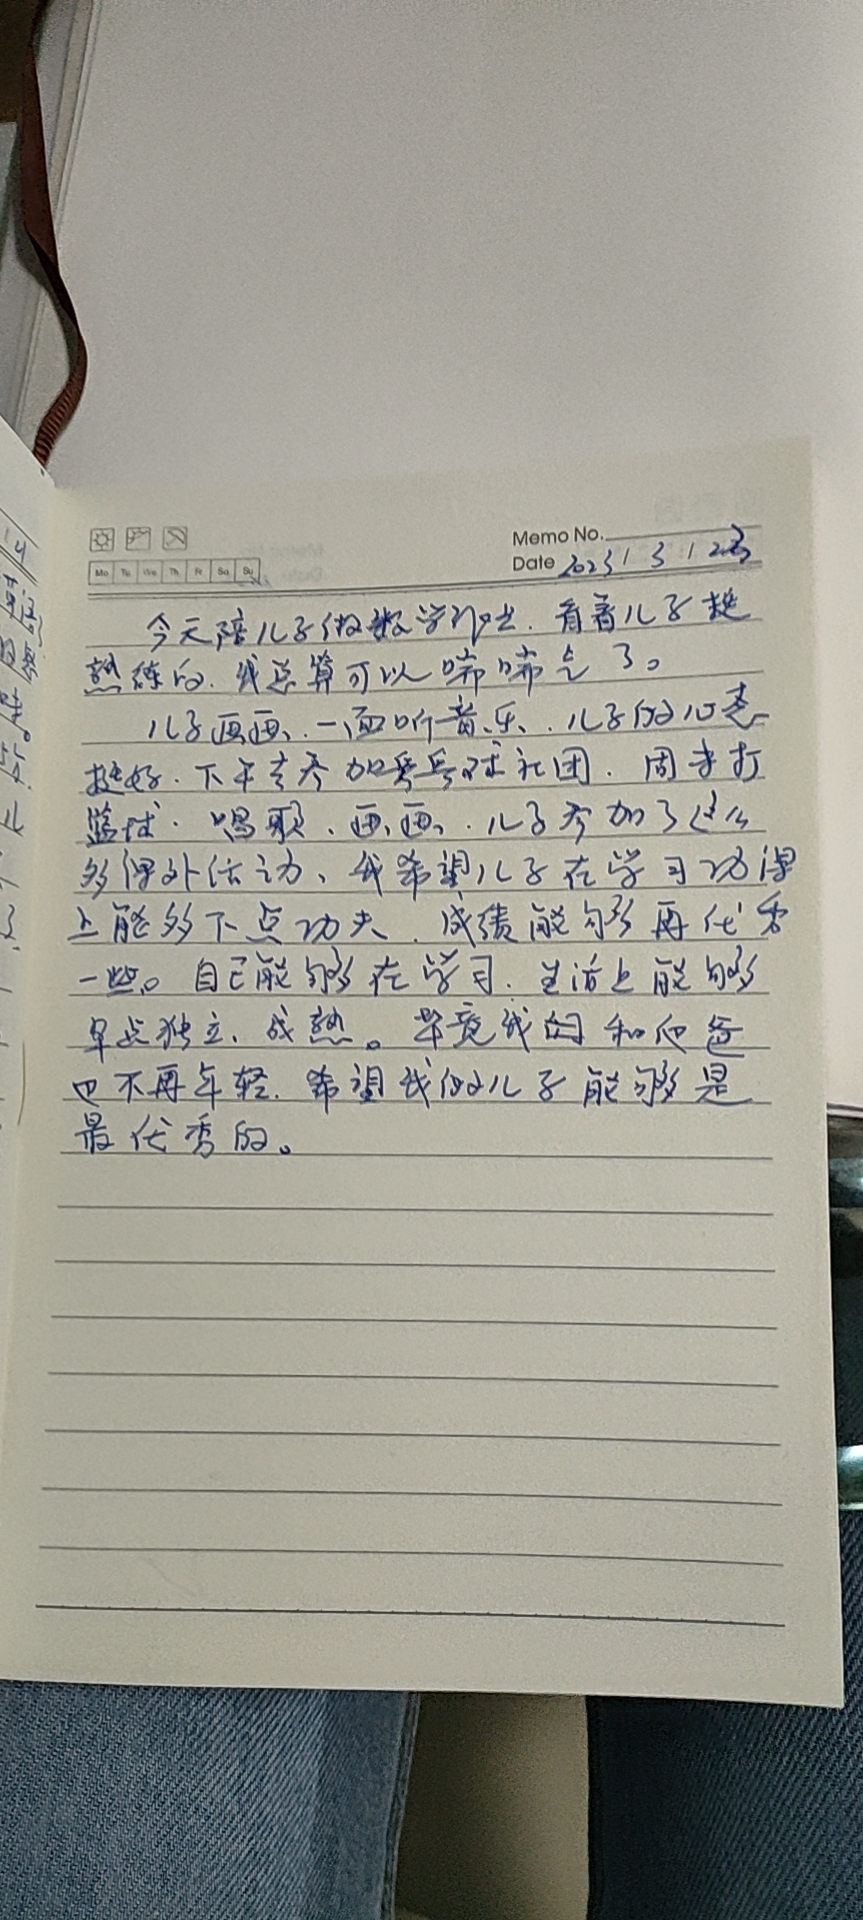 Memo No.
Date 2023 / 3 / 23
Mo Tu We Th Fr Sa Su
今天陪儿子做数学作业，看着儿子挺
熟练的，我总算可以喘喘气了。
儿子画画、一面听音乐、儿子的心态
挺好。下午去参加乒乓球社团，周末打
篮球、唱歌、画画，儿子参加了这么
多课外活动、我希望儿子在学习功课
上能多下点功夫，成绩能够再优秀
一些。自己能够在学习、生活上能够
早点独立、成熟。毕竟我的和爸爸
也不再年轻，希望我的儿子能够是
最优秀的。